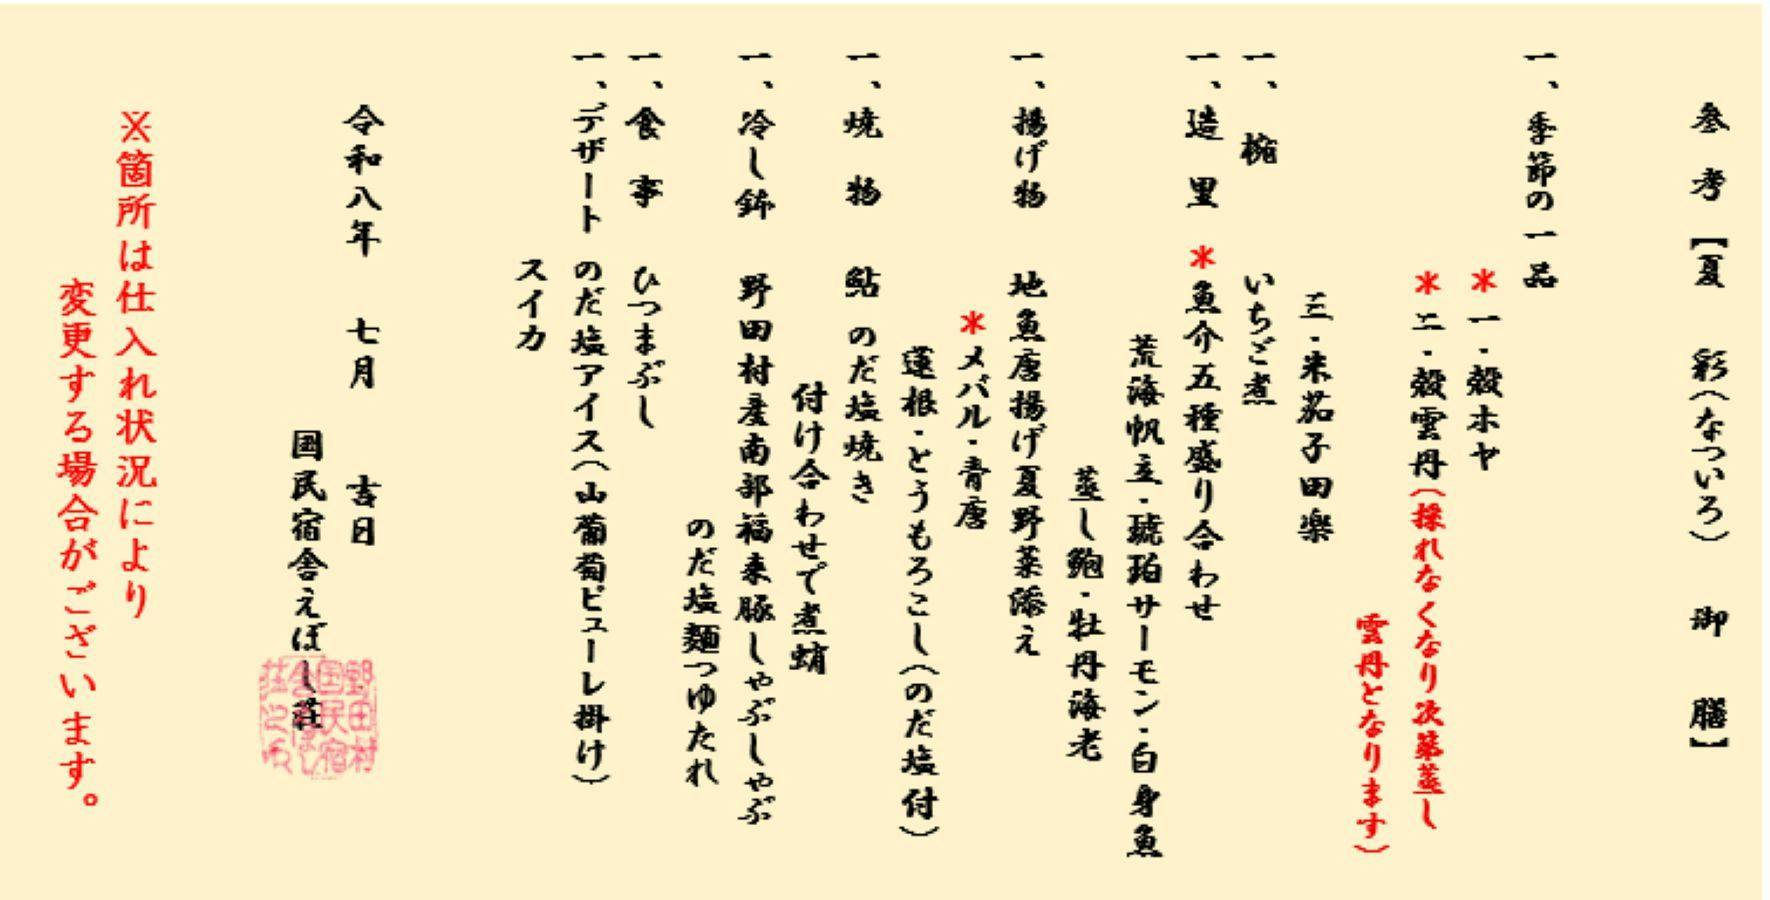 参考【夏 彩(なついろ) 御 膳】
一、季節の一品
＊一・殻ホヤ
＊二・殻雲丹(採れなくなり次第蒸し
雲丹となります)
三・米茄子田楽
一、椀 いちご煮
一、造 里 ＊魚介五種盛り合わせ
荒海帆立・琥珀サーモン・白身魚
蒸し鮑・牡丹海老
一、揚げ物 地魚唐揚げ夏野菜添え
＊メバル・青唐
蓮根・とうもろこし(のだ塩付)
一、焼 物 鮎 のだ塩焼き
付け合わせで煮蛸
一、冷し鉢 野田村産南部福来豚しゃぶしゃぶ
のだ塩麺つゆたれ
一、食 事 ひつまぶし
一、デザート のだ塩アイス(山葡萄ピューレ掛け)
スイカ
令和八年 七月 吉日
国民宿舎えぼし荘
野田村
国民宿
舎えぼし
荘
※箇所は仕入れ状況により
変更する場合がございます。